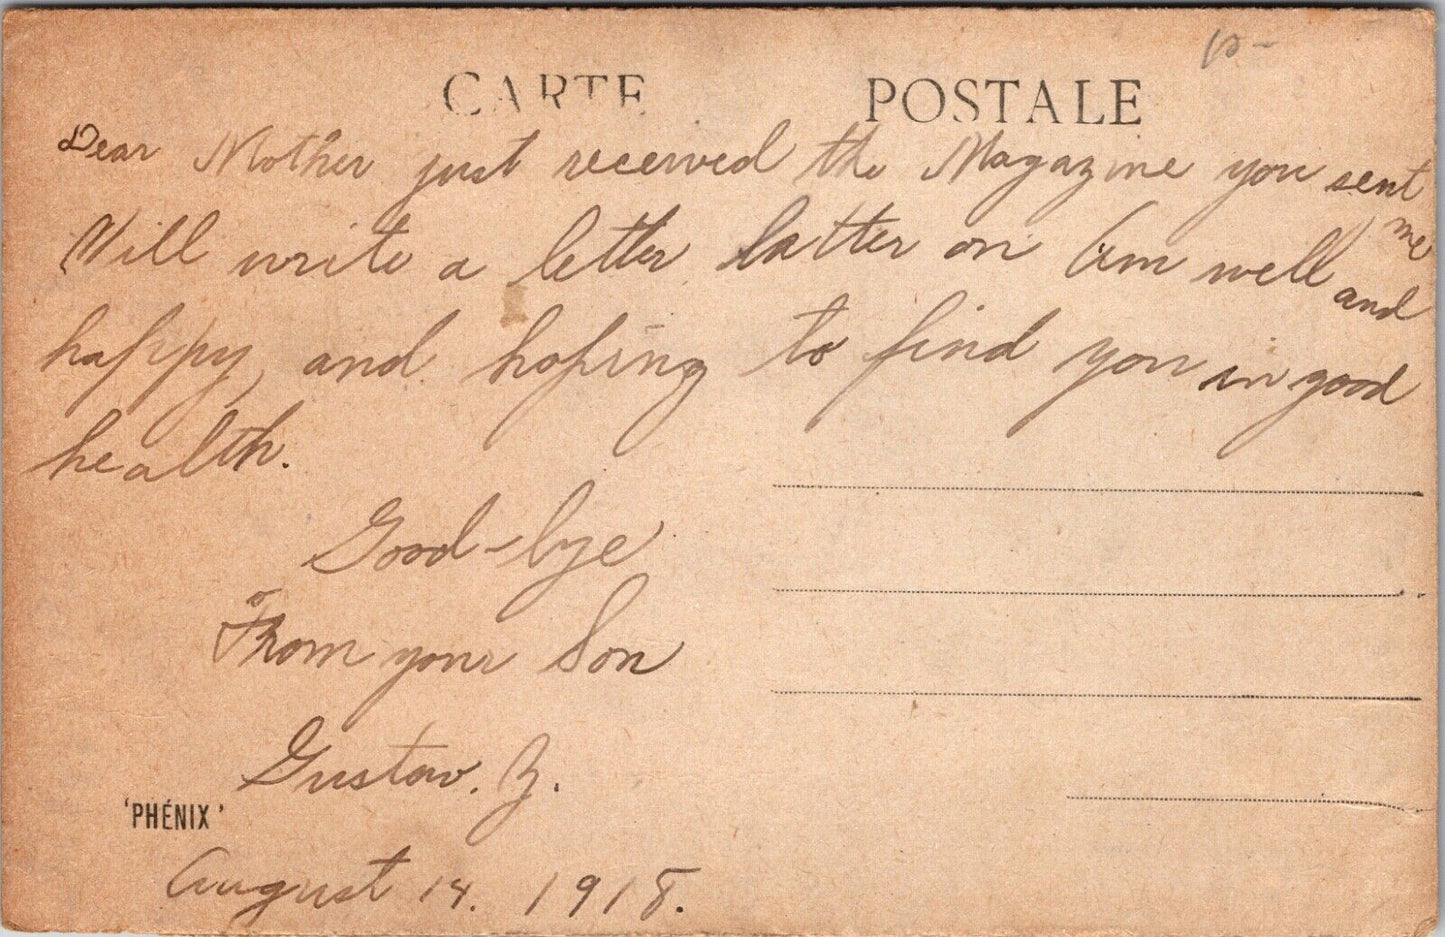 CARTE POSTALE
Dear Mother just received the Magazine you sent me
Will write a letter latter on Am well and
happy, and hoping to find you in good
health.
Good-bye
From your Son
Gustav. Z.
'PHÉNIX'
August 14. 1918.